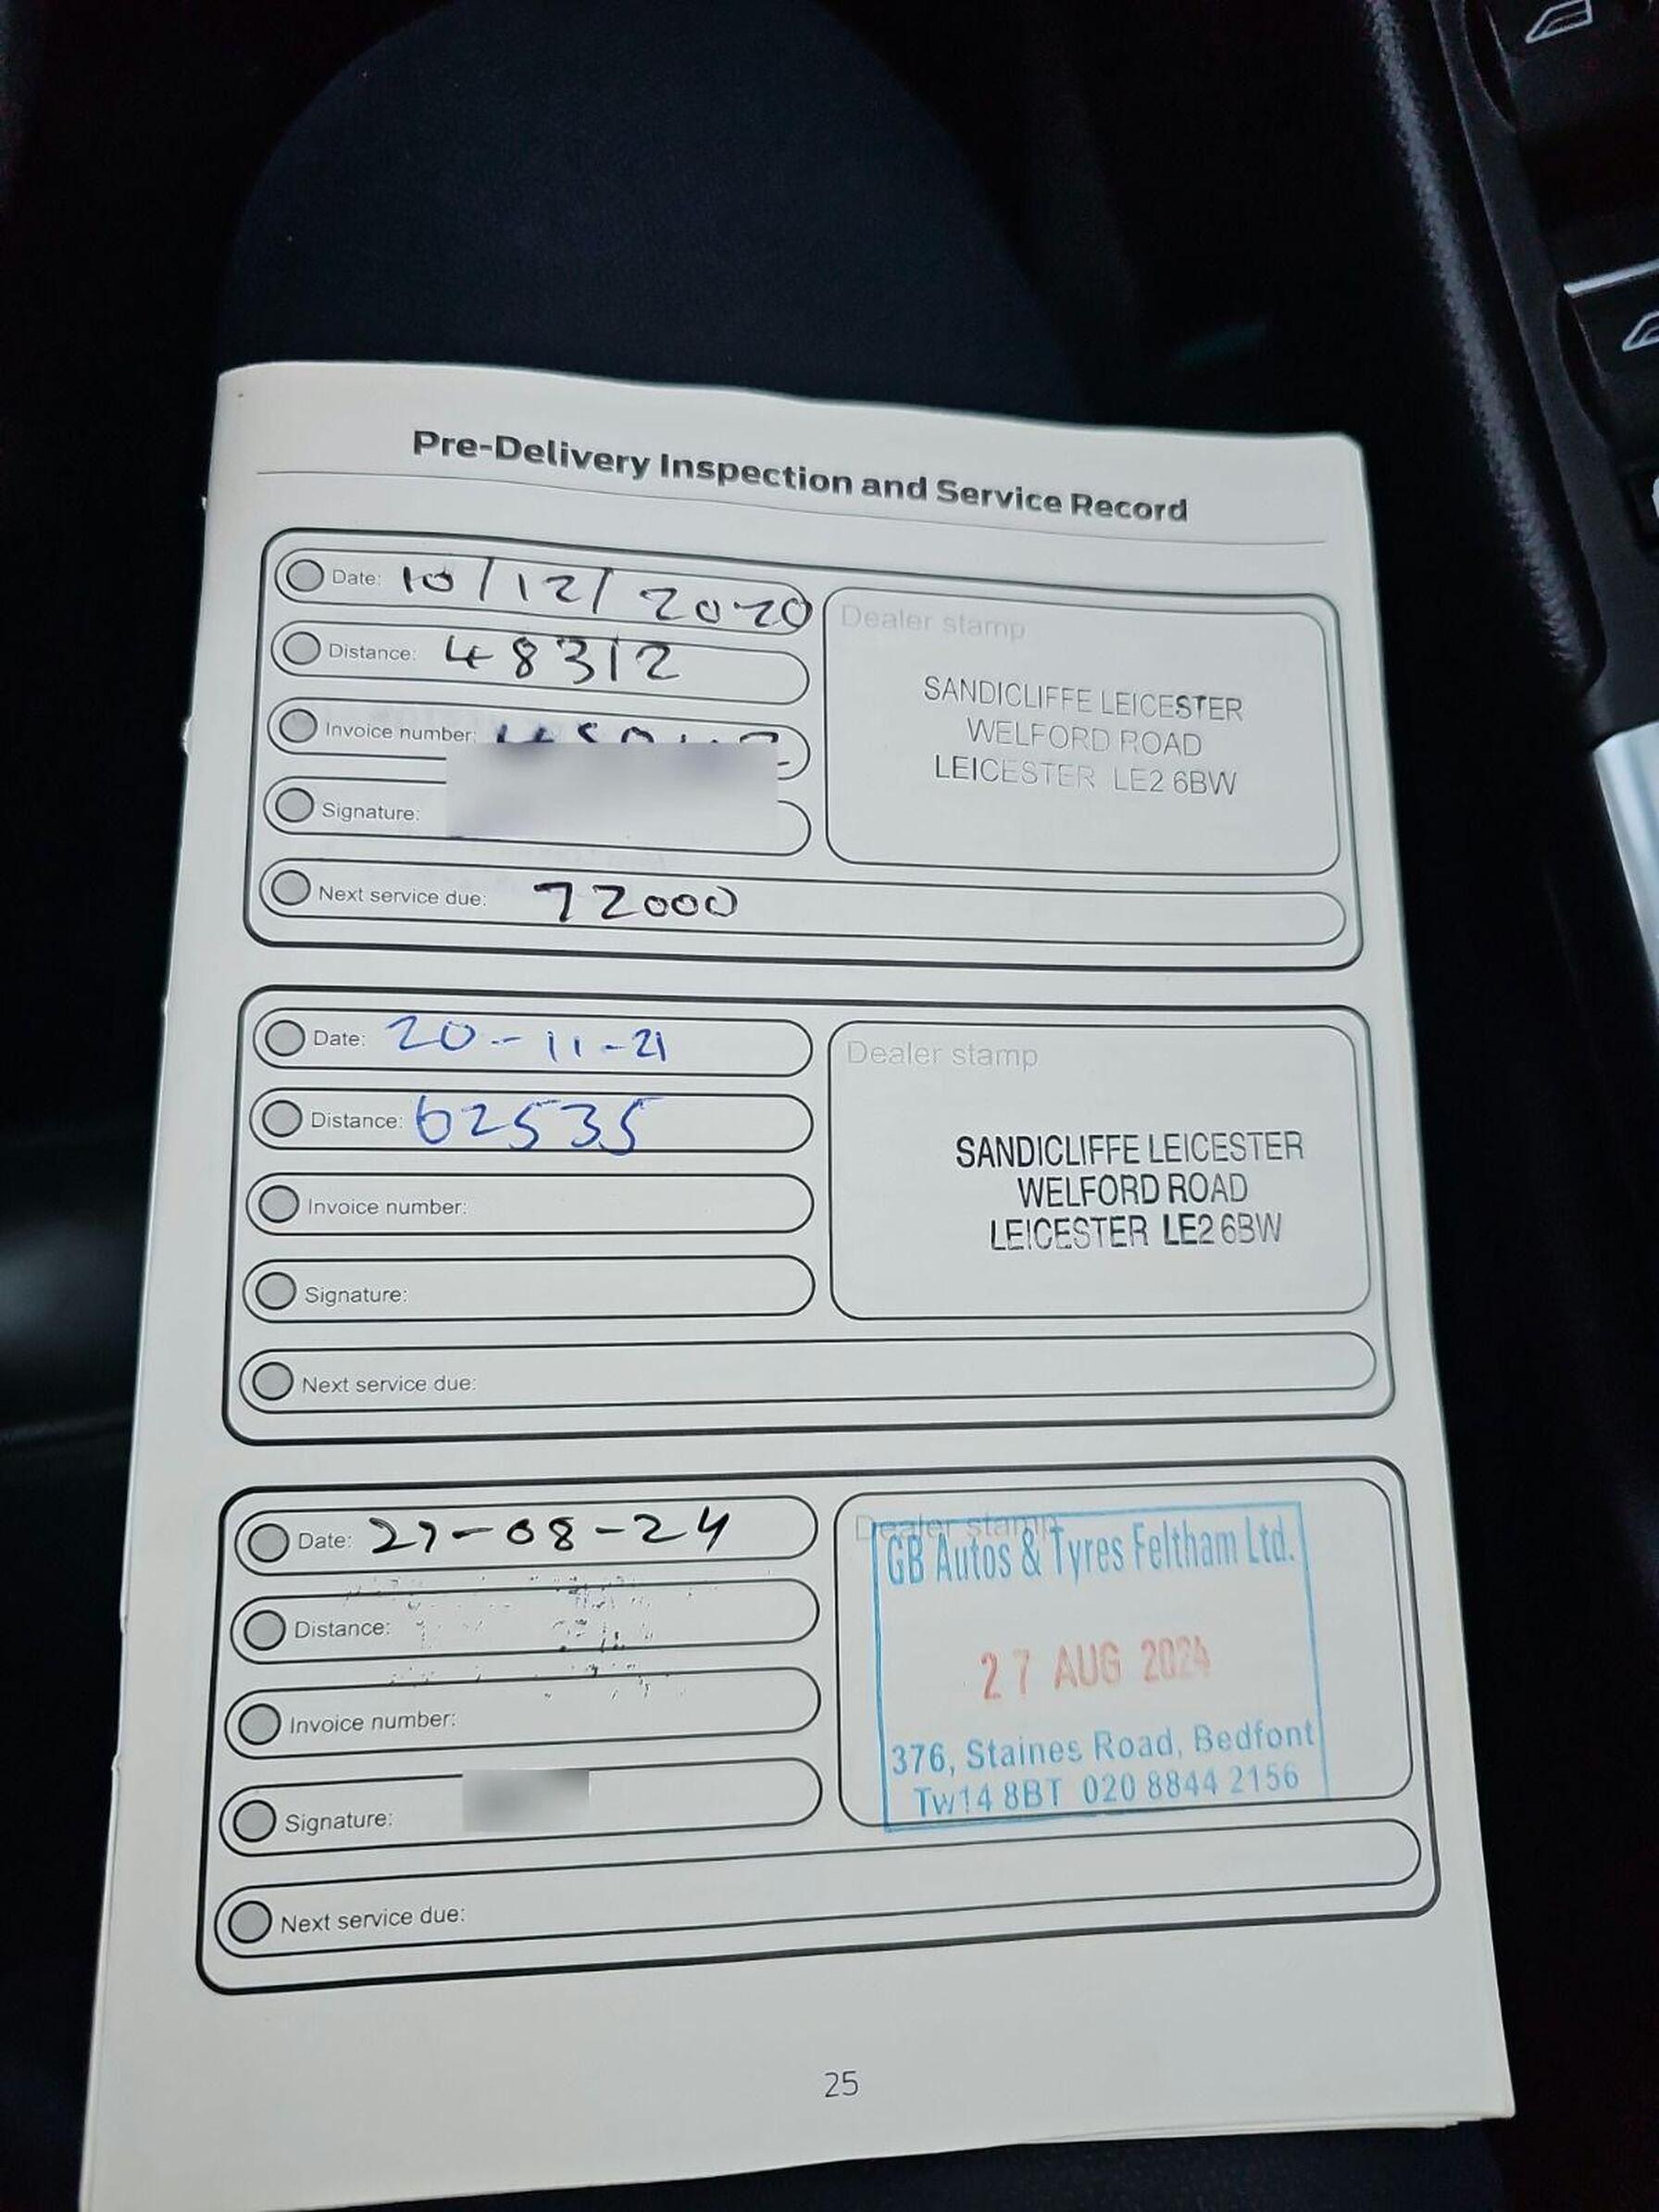 Pre-Delivery Inspection and Service Record
Date: 10/12/2020
Distance: 48312
Invoice number:
Signature:
Next service due: 72000
Dealer stamp
SANDICLIFFE LEICESTER
WELFORD ROAD
LEICESTER LE2 6BW
Date: 20-11-21
Distance: 62535
Invoice number:
Signature:
Next service due:
Dealer stamp
SANDICLIFFE LEICESTER
WELFORD ROAD
LEICESTER LE2 6BW
Date: 27-08-24
Distance:
Invoice number:
Signature:
Next service due:
Dealer stamp
GB Autos & Tyres Feltham Ltd.
27 AUG 2024
376, Staines Road, Bedfont
Tw14 8BT 020 8844 2156
25